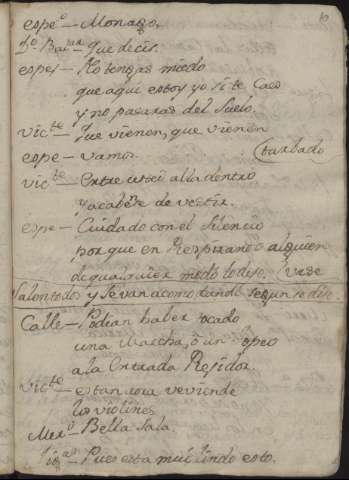 10
espe.o — Monazo.
Que decis.
espe; — No tengas miedo
que aqui estoy yo si te Caes
y no pasaras del Suelo.
vic.te — Que vienen, que vienen
espe — vamos. (turbado
vic.te — Entre usté alla dentro
y acabese de vestir.
espe — Cuidado con el Silencio
porque en Respirando alguien
de qualquier modo lo dejo. (vase
Salen todos y se van acomodando segun se dise.
Calle — Podian haber tocado
una Marcha, ó un
a la Entrada Rejidor.
vic.te — estan
los violines
Mer.o — Bella Sala.
Pues esta mui lindo esto.